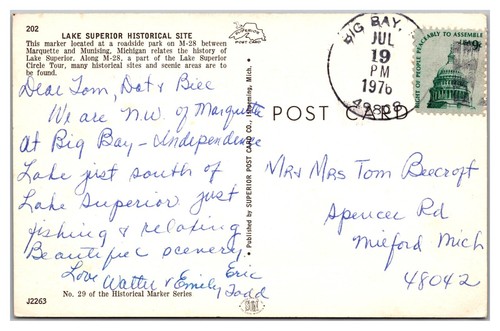 202
LAKE SUPERIOR HISTORICAL SITE
This marker located at a roadside park on M-28 between
Marquette and Munising, Michigan relates the history of
Lake Superior. Along M-28, a part of the Lake Superior
Circle Tour, many historical sites and scenic areas are to
be found.
Dear Tom, Dot & Bill
We are N.W. of Marquette
at Big Bay - Independence
Lake just south of
Lake Superior just
fishing & relaxing
Beautiful scenery
Love Eric
Walter & Emily Todd
No. 29 of the Historical Marker Series
J2263
SUPERIOR
POST CARD
Published by SUPERIOR POST CARD CO., Ishpeming, Mich.
POST CARD
BIG BAY,
JUL
19
PM
1976
49808
RIGHT OF PEOPLE PEACEABLY TO ASSEMBLE
Mr & Mrs Tom Beecroft
Spencer Rd
Milford Mich
48042